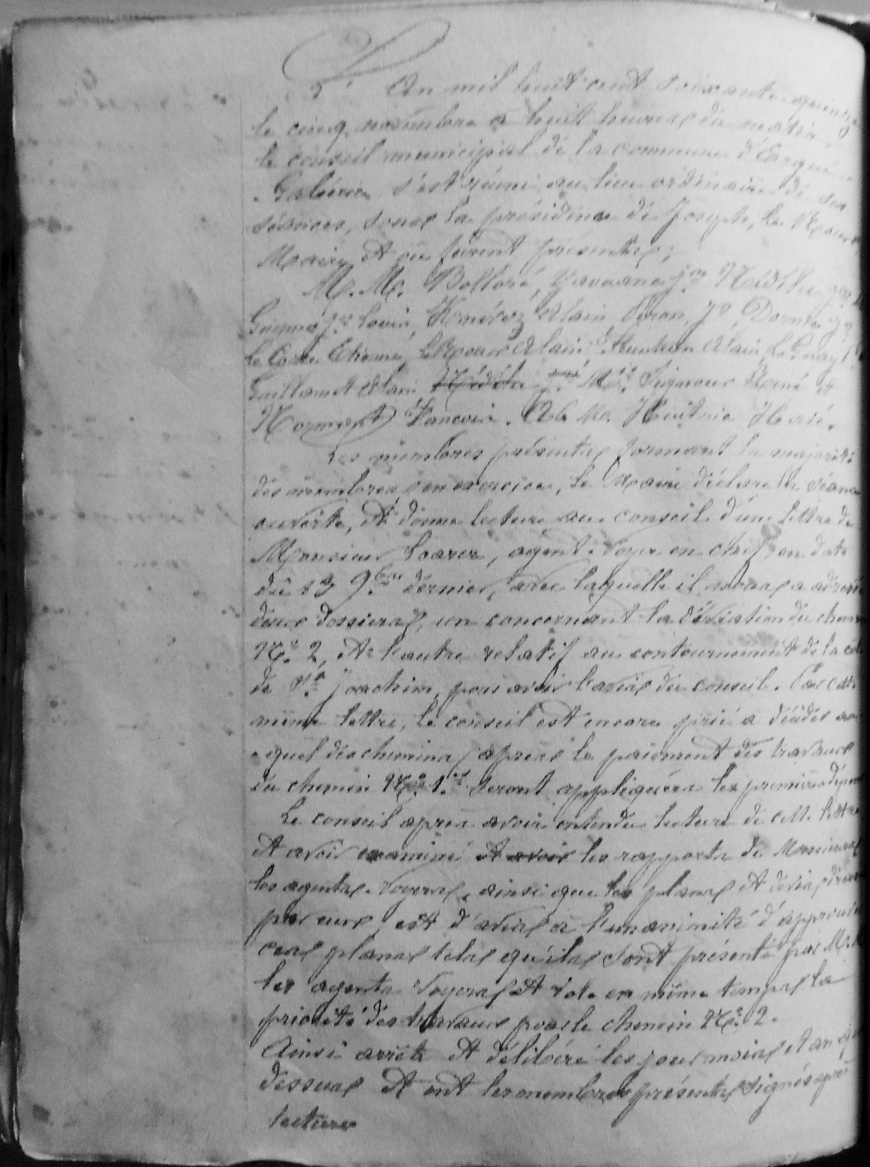 L'An mil huit cent soixante quinze
le cinq novembre a huit heures du matin
le conseil municipal de la commune d'Ergué
Gabéric s'est réuni au lieu ordinaire de ses
séances, sous la présidence de Joseph, Le Roux
Maire, Et où furent présents;
M. M. Bolloré, Nédélec
Louis, Alain
Le Corre Etienne, Alain, Alain, Le Guay
Guillaume Alain Nédélec Signour René et
François. Ab. Mr. Hervé.
Les membres présents formant la majorité
des membres en exercice, le Maire déclare la séance
ouverte, Et donne lecture au conseil d'une lettre de
Monsieur Loarer, agent-Voyer en chef, en date
du 13 9bre dernier, avec laquelle il nous a adressé
deux dossiers, un concernant la déviation du chemin
No. 2, Et l'autre relatif au contournement de la côte
de St. Joachim, pour avoir l'avis du conseil. Par cette
même lettre, le conseil est encore prié a décider au
quel des chemins, après le paiement des travaux
du chemin No. 1er Seront appliquées les premières dépen
Le conseil après avoir entendu lecture de cette lettre
Et avoir examiné Et avoir les rapports de Messieurs
les agents-Voyers, ainsi que les plans Et devis dressés
par eux, est d'avis a l'unanimité d'approuver
ces plans tels qu'ils sont présenté par M.M
les agents Voyers Et vote en même temps la
priorité des travaux pour le chemin No. 2.
Ainsi arrêté Et délibéré les jour mois et an que
dessus Et ont les membres présents signés après
lecture